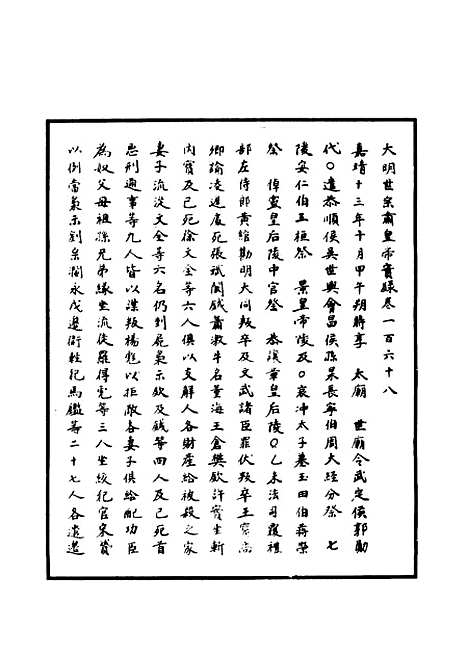 大明世宗肅皇帝實錄卷一百六十八
嘉靖十三年十月甲午朔時享　太廟　世廟令武定侯郭勛
代○遣恭順侯吳世興會昌侯孫杲長寧伯周大經分祭　七
陵安仁伯王桓祭　景皇帝陵及○哀冲太子墓玉田伯蔣榮
祭　悼靈皇后陵中官祭　恭讓章皇后陵○乙未法司覆禮
部左侍郎黃綰勘明大同叛卒及文武諸臣罪伏叛卒王
卿諭凌遲處死張玳閻鉞蕭淑牛名董海王倉樊欽許寶生斬
內寶及已死徐文全等六人俱以支解人各財產給被殺之家
妻子流從文全等六名仍剉屍梟示欽及鉞等四人及已死首
惡刑通事等九人皆以謀叛楊彪以拒敵各妻子俱給配功臣
為奴父母祖孫兄弟緣坐流徒羅得甫等三人坐絞犯官宋贇
以例當梟示到宗閻永戍邊衛軫犯馬鑑等二十七人各遣邊